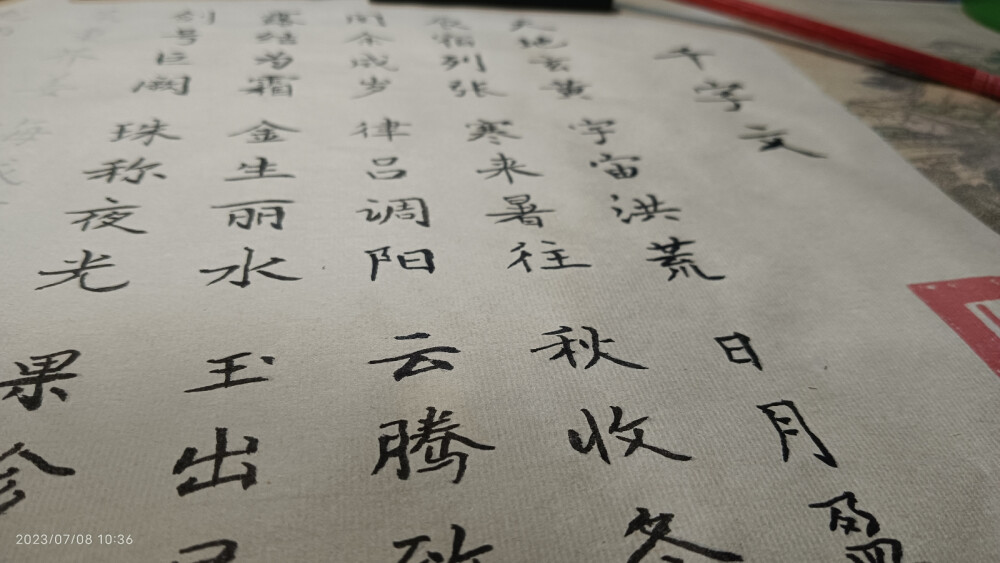 千字文
天地玄黄宇宙洪荒日月盈
辰宿列张寒来暑往秋收冬
闰余成岁律吕调阳云腾致
露结为霜金生丽水玉出
剑号巨阙珠称夜光果珍
2023/07/08 10:36